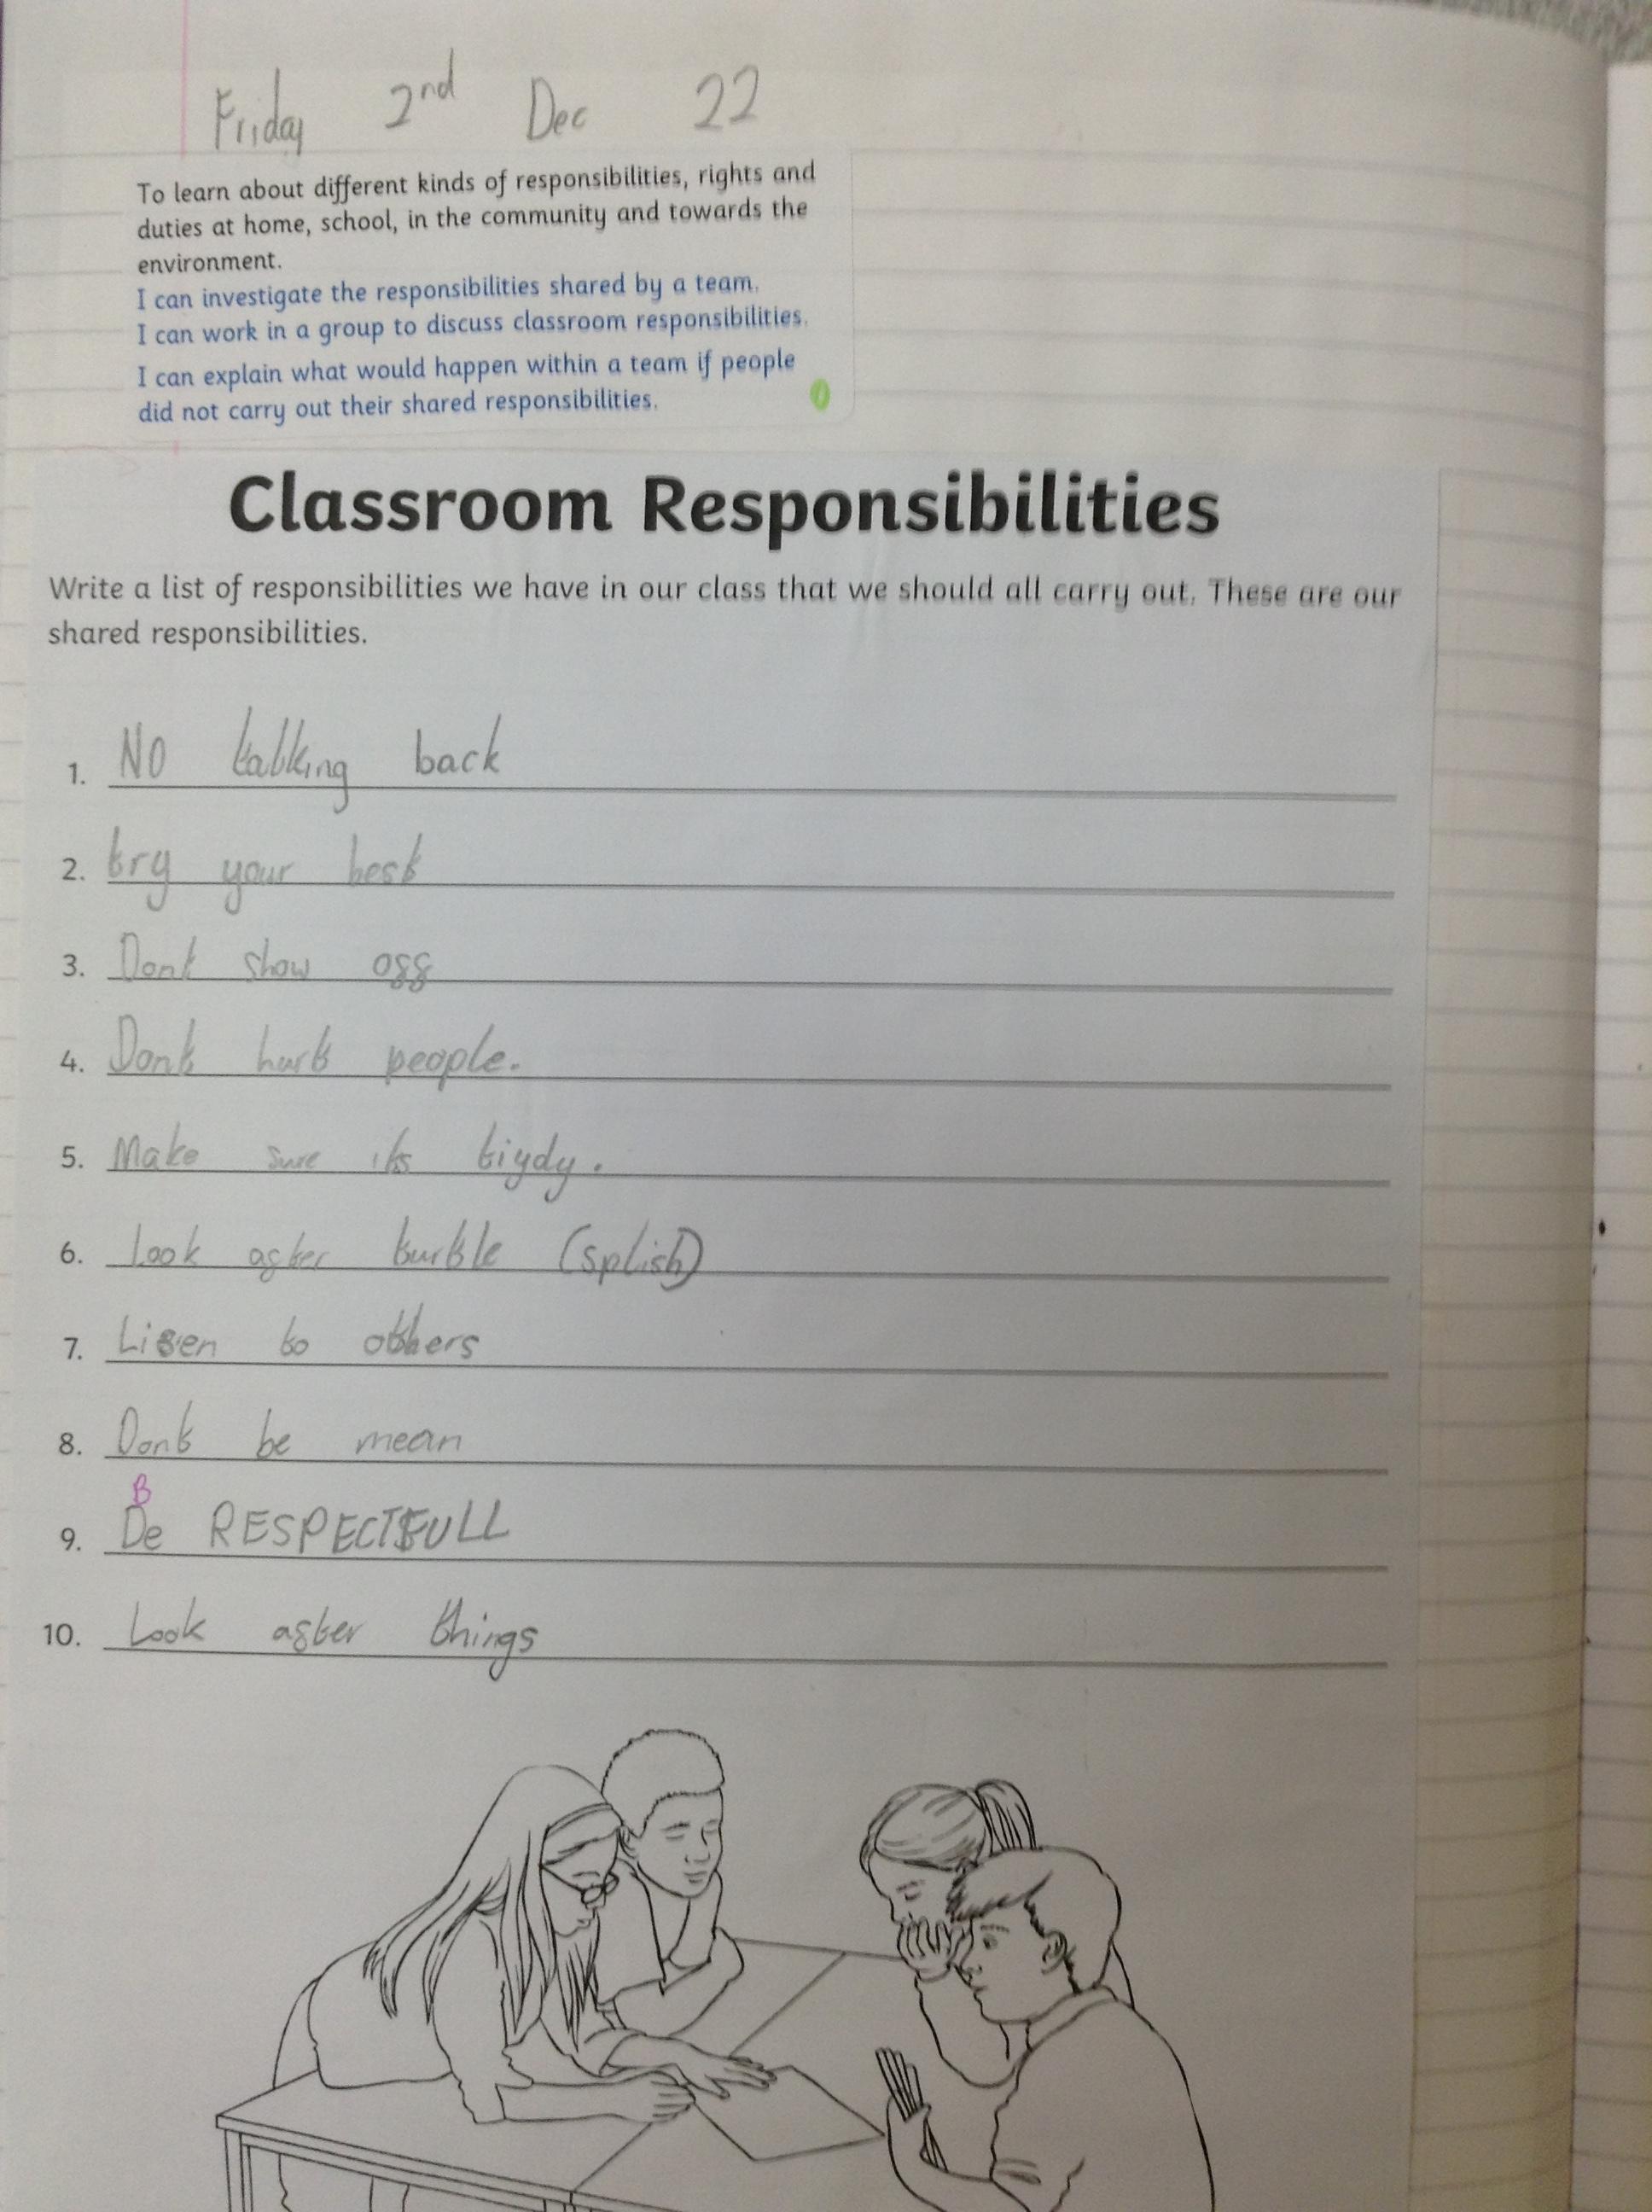 Friday 2nd Dec 22
To learn about different kinds of responsibilities, rights and
duties at home, school, in the community and towards the
environment.
I can investigate the responsibilities shared by a team.
I can work in a group to discuss classroom responsibilities.
I can explain what would happen within a team if people
did not carry out their shared responsibilities.
Classroom Responsibilities
Write a list of responsibilities we have in our class that we should all carry out. These are our
shared responsibilities.
1. NO talking back
2. try your best
3. Dont show off
4. Dont hurt people.
5. Make sure its tiydy.
6. Look after turtle (splish)
7. Lisen to others
8. Dont be mean
B
9. De RESPECTFULL
10. Look after things